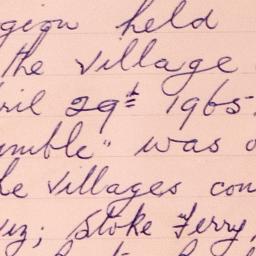 geon held
the village
ril 29th 1965.
umble" was o
he villages con
viz; Stoke Ferry,